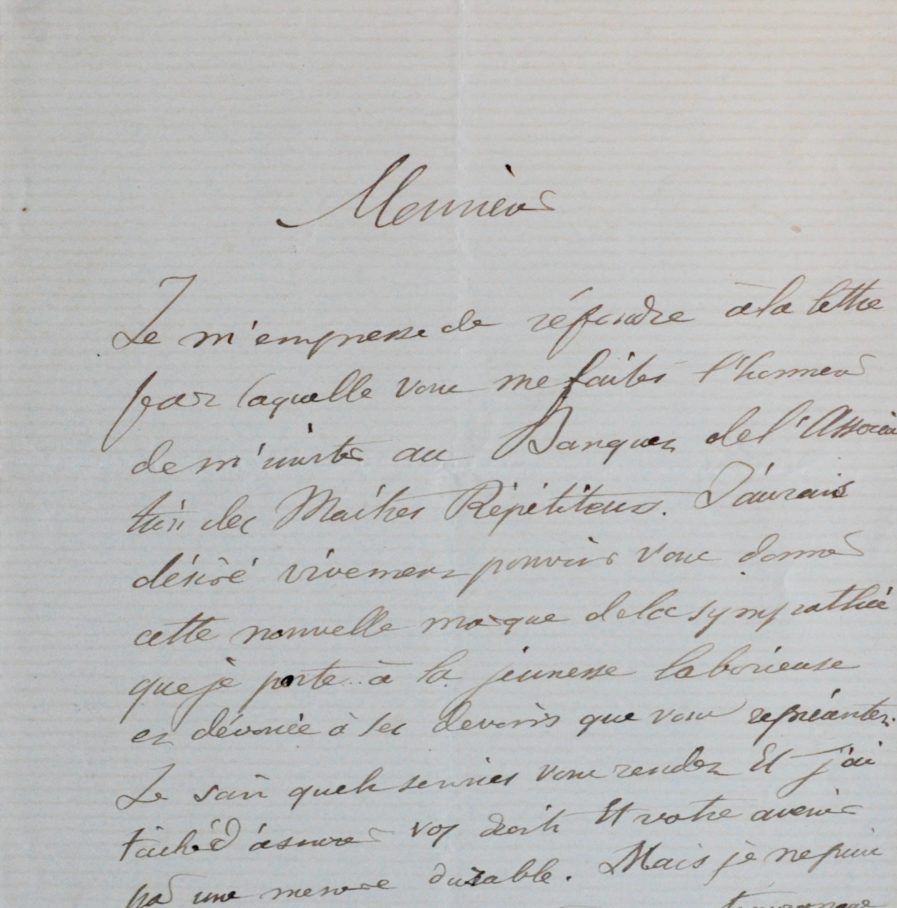 Monsieur
Je m'empresse de répondre à la lettre
par laquelle vous me faites l'honneur
de m'inviter au Banquet de l'Associa
tion des Maîtres Répétiteurs. J'aurais
désiré vivement pouvoir vous donner
cette nouvelle marque de la sympathie
que je porte à la jeunesse laborieuse
et dévouée à ses devoirs que vous représentez.
Je sais quels services vous rendez Et j'ai
tâché d'assurer vos droits Et votre avenir
par une mesure durable. Mais je ne puis